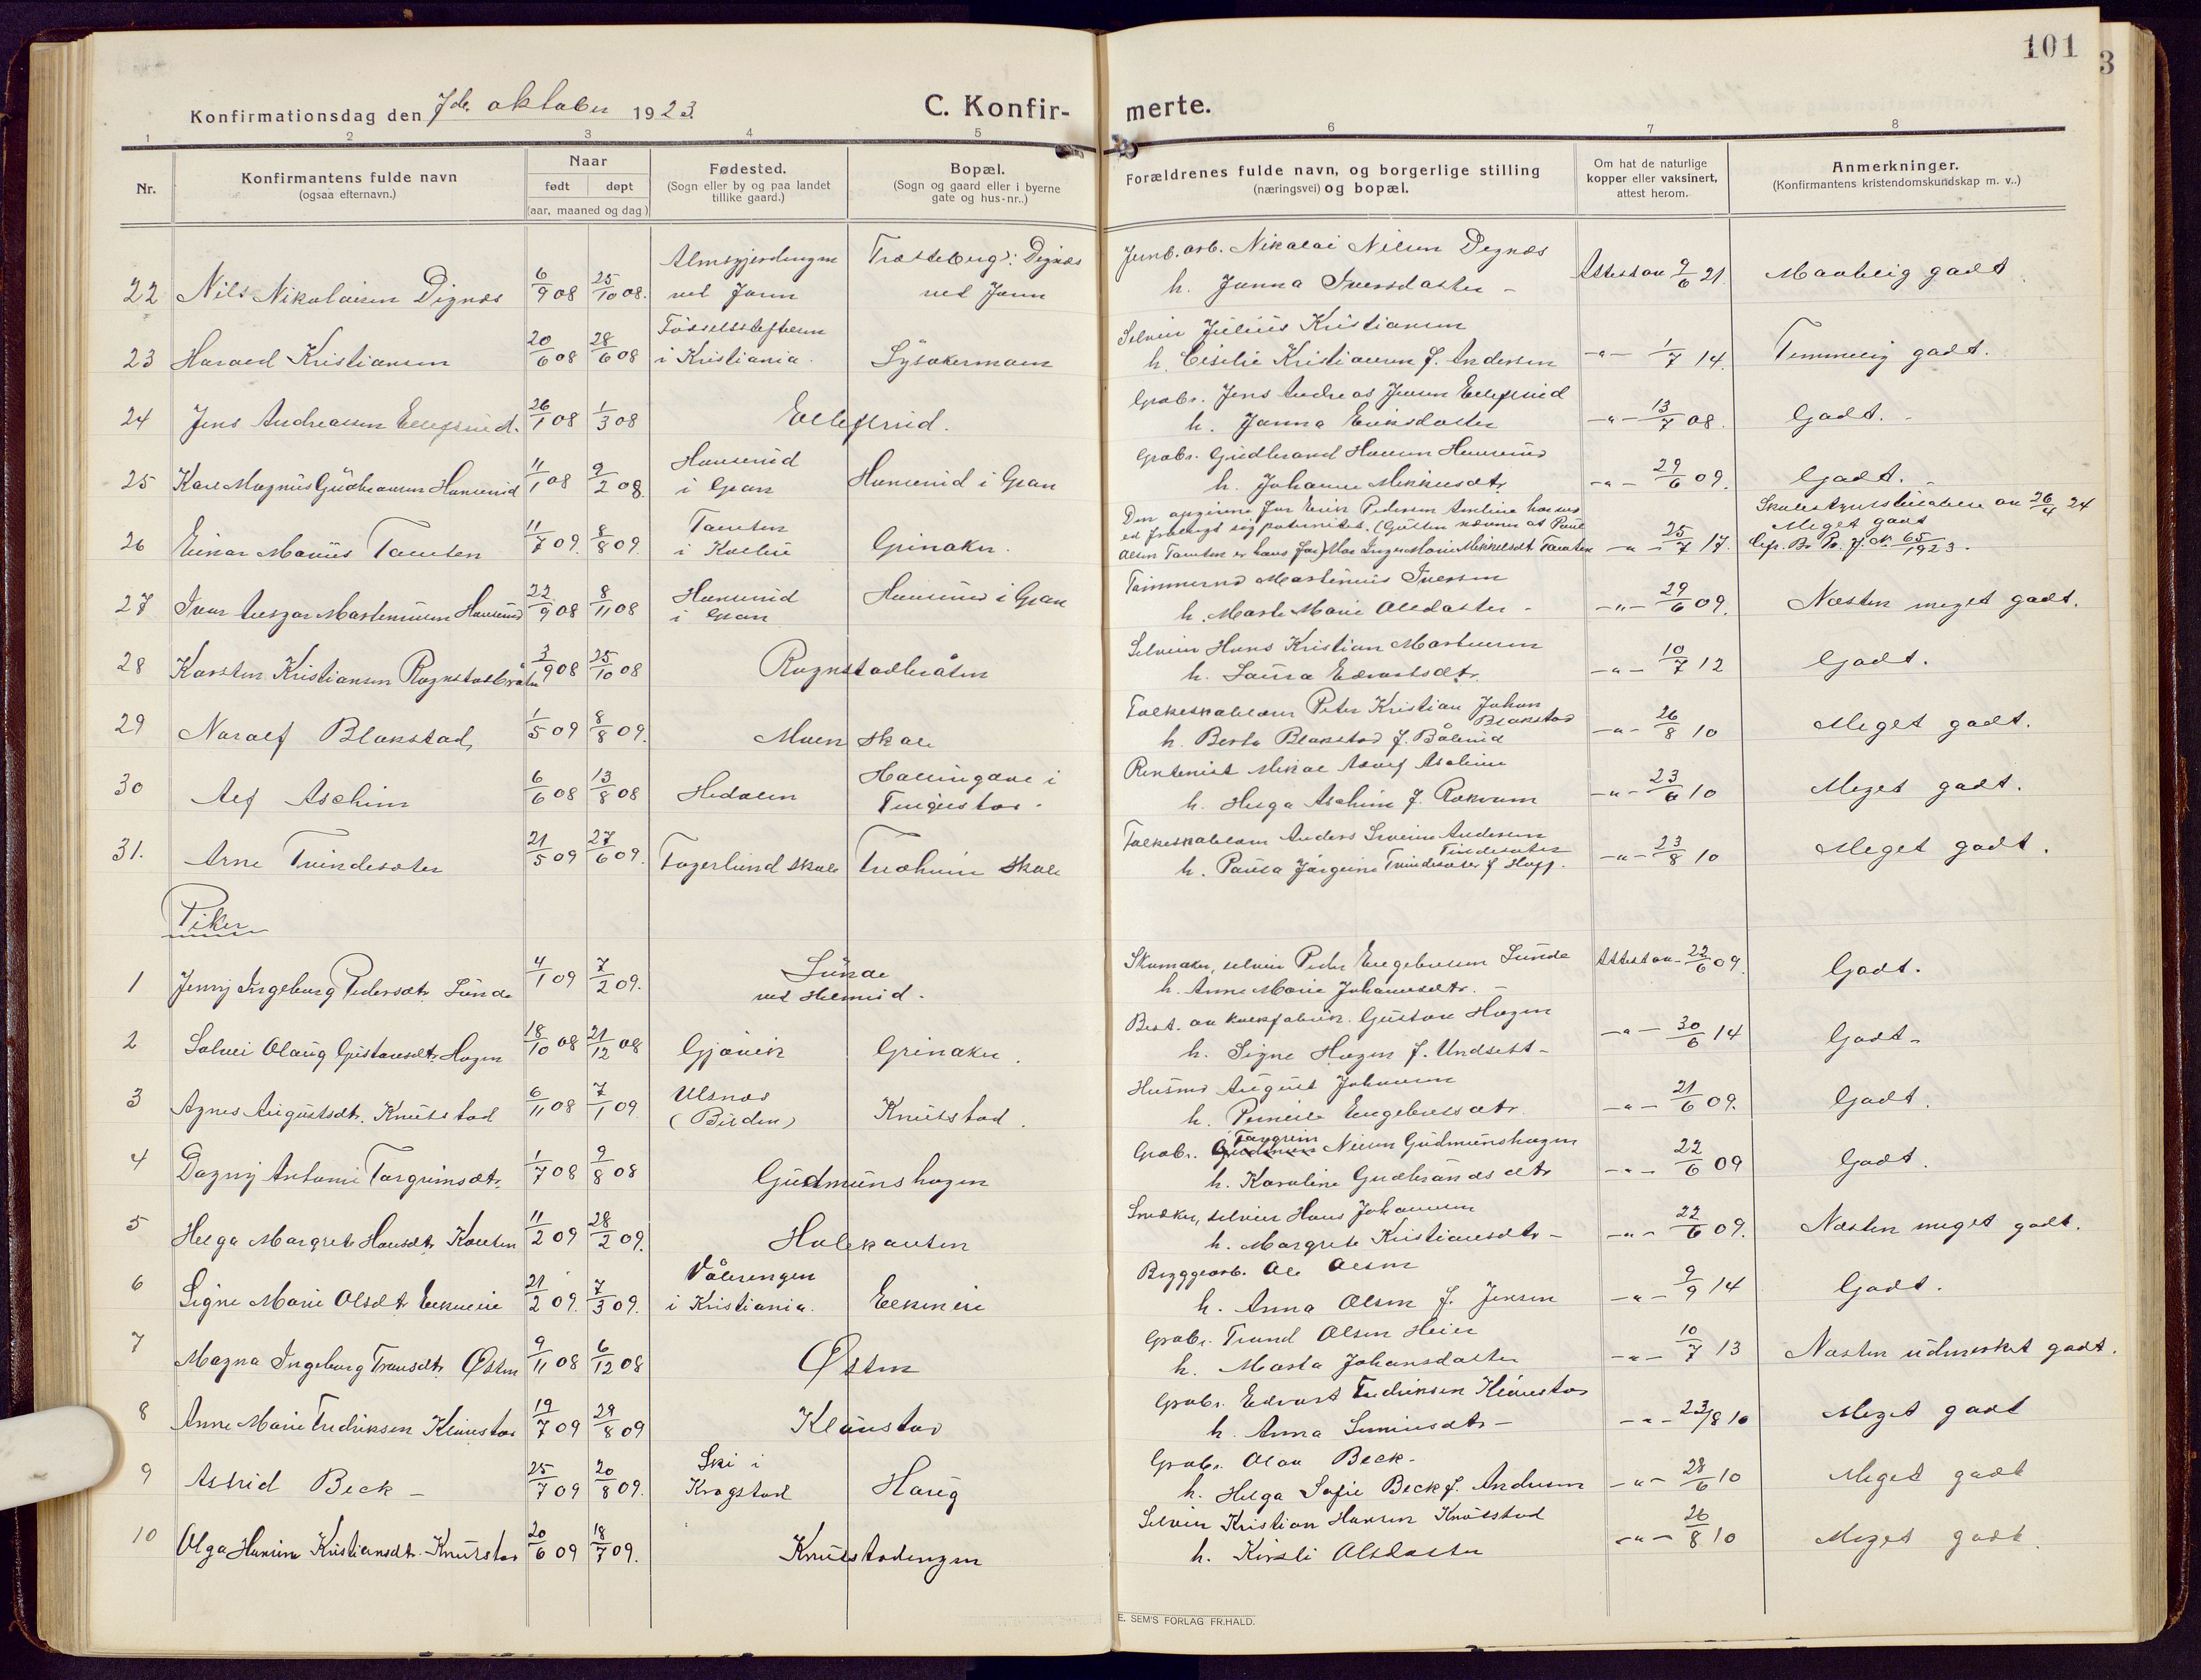 101
3
Konfirmationsdag den 7de oktober 1923.
C. Konfir-
merte.
1 2 3 4 5 6 7 8
Nr.
Konfirmantens fulde navn
(ogsaa efternavn.)
Naar
født døpt
(aar, maaned og dag)
Fødested.
(Sogn eller by og paa landet
tillike gaard.)
Bopæl.
(Sogn og gaard eller i byerne
gate og hus-nr..)
Forældrenes fulde navn, og borgerlige stilling
(næringsvei) og bopæl.
Om hat de naturlige
kopper eller vaksinert,
attest herom.
Anmerkninger.
(Konfirmantens kristendomskundskap m. v..)
22 Nils Nikolaisen Dignæs 6/9 08 25/10 08. Almsgjerdingen ved Jaren Træsteberg: Dignæs ved Jaren
Jernb. arb. Nikolai Nilsen Dignæs
h. Janna Iversdatter - Attest av 9/6 21. Maatelig godt
23 Harald Kristiansen 20/6 08 28/6 08 Fødselsstiftelsen i Kristiania. Lysakermoen
Selveier Julius Kristiansen
h. Cisilie Kristiansen f. Andersen -"- 1/7 14. Temmelig godt.
24 Jens Andreassen Ellefsrud. 26/1 08 1/3 08 Ellefsrud.
Grabr. Jens Andreas Jensen Ellefsrud
h. Janna Eriksdatter -"- 13/7 08. Godt. -
25 Karl Magnus Gudbransen Hanserud 11/1 08 9/2 08. Hanserud i Gran Hanserud i Gran
Grabr. Gudbrand Hansen Hanserud
h. Johanne Mikkelsdtr -"- 29/6 09. Godt. -
26 Einar Marius Tomten 11/7 09. 8/8 09. Tomten i Kolbu Grinaker.
Den opgivne Far Erik Pedersen Amlien har ved
ed fralagt sig paternitet. (Gutten nævner at Paul
Olsen Tomten er hans far) Mor Inger Marie Mikkelsdt. Tomten -"- 25/7 17.
Skolestyrets tilladelse av 26/4 24
Meget godt
Cfr. Br. Pr. J. No 65/1923.
27 Ivar Ansgar Martiniussen Hanserud 22/9 08 8/11 08 Hanserud i Gran Hanserud i Gran
Tømmermd Martinius Iversen
h. Marte Marie Olesdatter - -"- 29/6 09. Næsten meget godt.
28 Karsten Kristiansen Rognstadbråten 3/9 08 25/10 08 Rognstadbråten
Selveier Hans Kristian Martinsen
h. Laura Edvartsdtr. -"- 10/7 12 Godt.
29 Naralf Blakstad, 1/5 09 8/8 09. Moen skole
Folkeskolelærer Peter Kristian Johan
Blakstad
h. Berta Blakstad f. Bålerud -"- 26/8 10 Meget godt.
30 Alf Aschim 6/6 08 13/8 08 Hedalen Hallingdal i Tingelstad.
Rentenist Mikal Adolf Aschim
h. Helga Aschim f. Rokvam -"- 23/6 10 Meget godt.
31. Arne Trindesæter 21/5 09 27/6 09. Fagerlund skole Trøheim skole
Folkeskolelærer Anders Severin Andersen
Trindesæter
h. Paula Jørgine Trindesæter f Hoff. -"- 23/8 10 Meget godt.
Piker
1 Jenny Ingeborg Pedersdtr. Lunde 4/1 09 7/2 09. Lunde ved Helmeid.
Skomaker, selveier Peder Engebretsen Lunde
h. Anne Marie Johannesdtr. - Attest av 22/6 09. Godt.
2 Solvei Olaug Gustavsdt. Hagen 18/10 08 21/12 08 Gjøvik Grinaker.
Best. av korkfabrik. Gustav Hagen
h. Signe Hagen f. Undseth - -"- 30/6 14 Godt.
3 Agnes Augustsdt. Knutstad 6/11 08 7/1 09 Ulsnæs (Biiden) Knutstad.
Husmd August Johansen
h. Pernille Engebretsdtr. -"- 21/6 09. Godt.
4 Dagny Antonie Torgrimsdt. 1/7 08 9/8 08 Gudmunshagen
Grabr. Torgrim Nilsen Gudmunshagen
h. Karoline Gudbrandsdtr -"- 22/6 09 Godt.
5 Helga Margrete Hansdt. Kanten 11/2 09 28/2 09. Holekanten
Snekker, selveier Hans Johansen
h. Margrete Kristiansdtr - -"- 22/6 09. Næsten meget godt.
6 Signe Marie Olsdt. Ekmeie 21/2 09. 7/3 09. Vålerengen i Kristiania. Ekmeie
Bryggearb. Ole Olsen
h. Anna Olsen f. Jensen -"- 9/9 14 Godt.
7 Magna Ingeborg Transdt. Østen 9/11 08 6/12 08 Østen
Grabr. Trand Olsen Heier
h. Marta Johansdatter -"- 10/7 13 Næsten udmerket godt.
8 Anne Marie Fredriksen Klæustad 19/7 09 29/8 09 Klæustad
Grabr. Edvart Fredriksen Klæustad
h. Anna Simensdtr - -"- 23/8 10 Meget godt
9 Astrid Beck - 25/7 09 20/8 09. Ski i Kragstad Haug
Grabr. Olav Beck.
h. Helga Sofie Beck f. Andersen -"- 28/6 10 Meget godt
10 Olga Hansine Kristiansdt. Knutstad 20/6 09 18/7 09. Knutstadengen
Selveier Kristian Hansen Knutstad
h. Kirsti Olsdatter -"- 26/8 10 Meget godt.
E. SEM'S FORLAG FR.HALD.